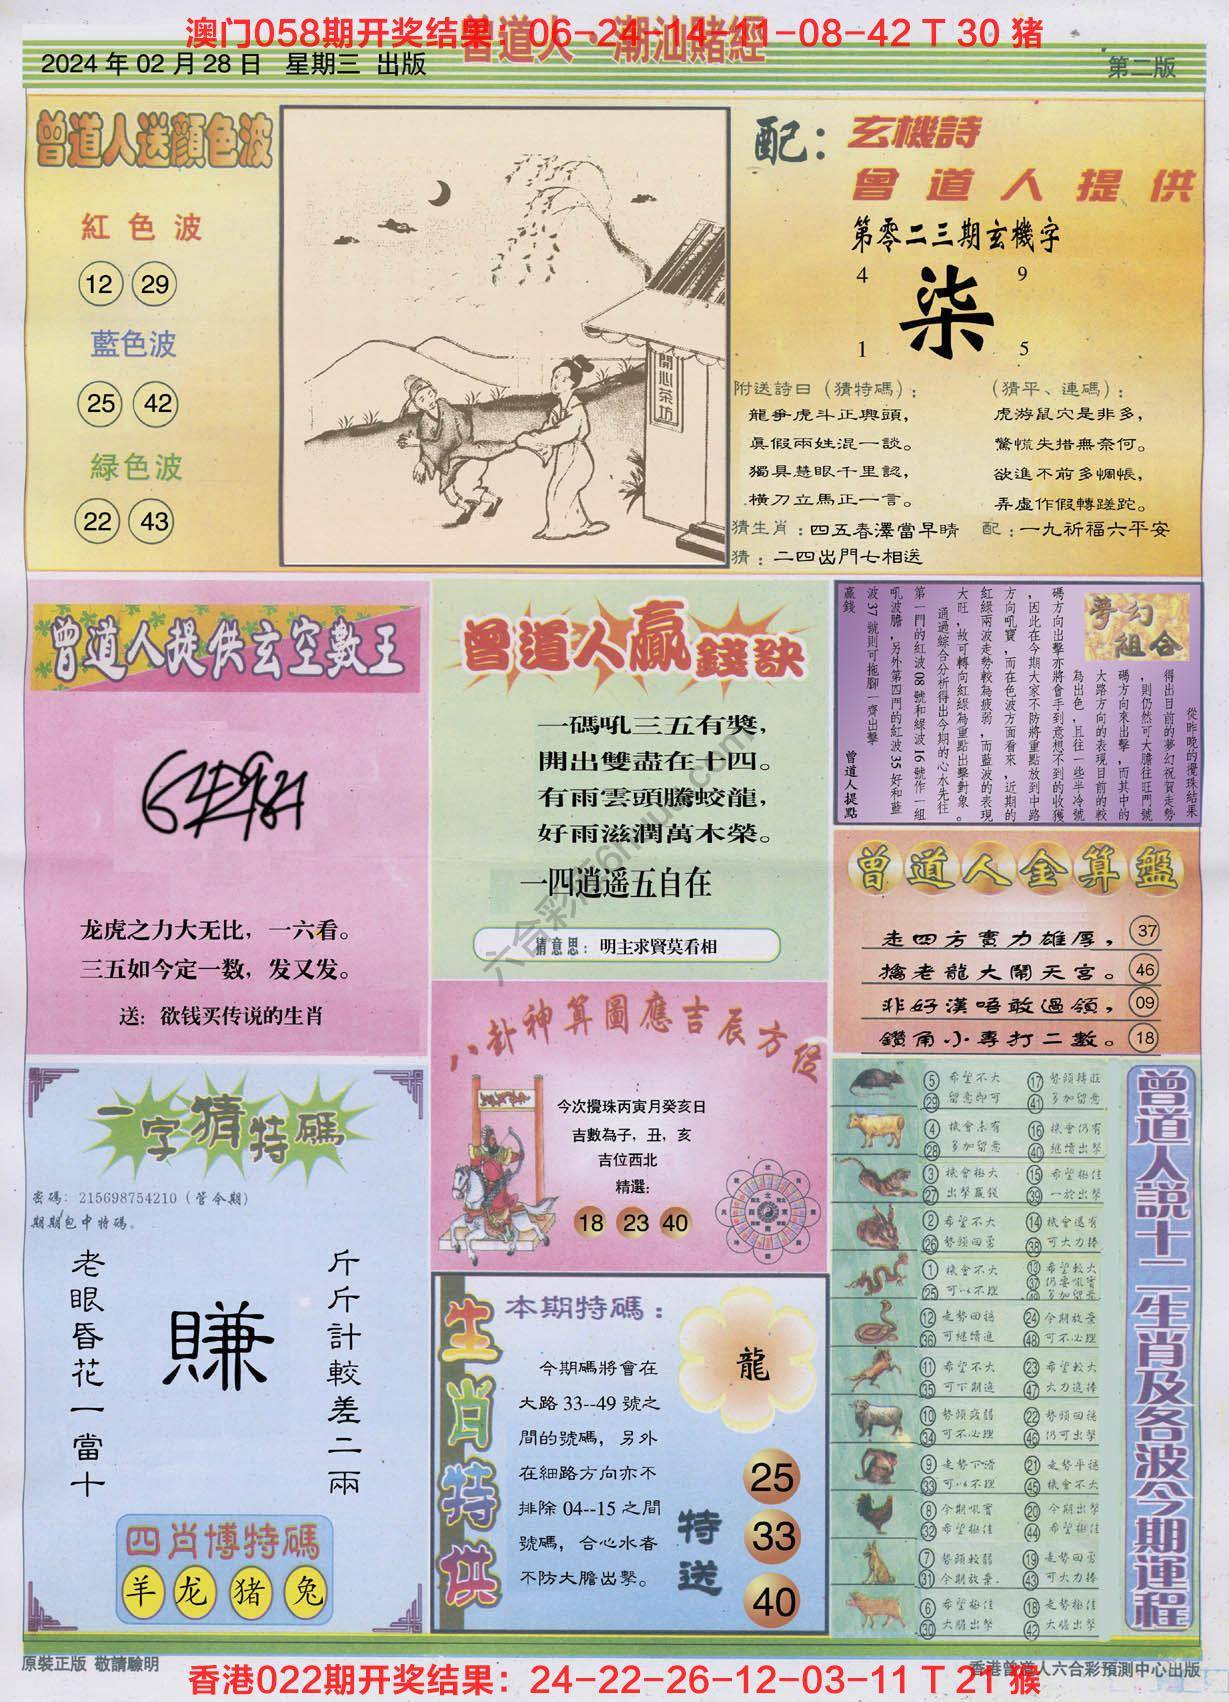 澳门058期开奖结果：06-24-14-41-08-42 T 30 猪
曾道人·潮汕賭經
2024 年 02 月 28 日 星期三 出版
第二版
曾道人送顔色波
紅色波
12 29
藍色波
25 42
緑色波
22 43
開心茶坊
配：玄機詩
曾道人提供
第零二三期玄機字
4 9
柒
1 5
附送詩曰（猜特碼）：
龍爭虎斗正興頭，
真假兩姓混一談。
獨具慧眼千里認，
橫刀立馬正一言。
（猜平、連碼）：
虎游鼠穴是非多，
驚慌失措無奈何。
欲進不前多惆悵，
弄虛作假轉蹉跎。
猜生肖：四五春澤當早晴 配：一九祈福六平安
猜：二四出門七相送
曾道人提供玄空數王
龙虎之力大无比，一六看。
三五如今定一数，发又发。
送：欲钱买传说的生肖
曾道人贏錢訣
一碼吼三五有獎，
開出雙盡在十四。
有雨雲頭騰蛟龍，
好雨滋潤萬木榮。
一四逍遥五自在
猜意思：明主求賢莫看相
夢幻組合
從昨晚的攪珠結果
得出目前的夢幻祝賀走勢
，則仍然可大膽往旺門號
碼方向來出擊，而其中的
大路方向的表現目前的較
為出色，且往一些半冷號
碼方向出擊亦將會手到意想不到的收獲
，因此在今期大家不防將重點放到中路
方向吼寶，而在色波方面看來，近期的
紅綠兩波走勢較為疲弱，而藍波的表現
大旺，故可轉向紅綠為重點出擊對象。
通過綜合分析得出今期的心水先往
第一門的紅波 08 號和緑波 16 號作一組
吼波膽，另外第四門的紅波 35 好和藍
波 37 號則可拖腳一齊出擊
贏錢
曾道人提點
曾道人金算盤
走四方實力雄厚， 37
擒老龍大鬧天宮。 46
非好漢唔敢過領， 09
鑽角小專打二數。 18
一字猜特碼
密碼：215698754210（管令期）
期期包中特碼。
斤斤計較差二兩
賺
老眼昏花一當十
四肖博特碼
羊 龙 猪 兔
八卦神算圖應吉辰方位
今次攪珠丙寅月癸亥日
吉數為子，丑，亥
吉位西北
精選：
18 23 40
生肖特供
本期特碼：
龍
今期碼將會在
大路 33--49 號之
間的號碼，另外
在細路方向亦不
排除 04--15 之間
號碼，合心水者
不防大膽出擊。
特送
25
33
40
曾道人説十二生肖及各波今期運程
5 希望不大 17 勢頭轉旺
29 留意即可 41 多加留意
4 機會未有 16 機會仍有
28 多加留意 40 繼續出擊
3 機會極大 15 希望極佳
27 出擊贏錢 39 一於出擊
2 希望不大 14 機會還有
26 勢頭回勇 38 可大力捧
1 機會不大 13 希望較大
25 可以不理 37 仍要吼實
多加留意
12 走勢回穩 24 今期放棄
36 可繼續追 48 可不必理
11 希望不大 23 希望較大
35 可下期追 47 大力追捧
10 勢頭疲弱 22 勢頭回穩
34 可不必理 46 仍可出擊
9 走勢下滑 21 走勢平穩
33 可以不理 45 機會不大
8 今期吼實 20 今期出擊
32 希望極佳 44 希望極佳
7 勢頭較弱 19 走勢回勇
31 今期放棄 43 可大力捧
6 希望極佳 18 走勢極佳
30 大膽出擊 42 大膽出擊
原裝正版 敬請驗明
香港曾道人六合彩預測中心出版
香港022期开奖结果：24-22-26-12-03-11 T 21 猴